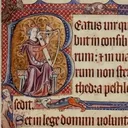 Beatus uir qu
but in consili
rum: & in uia
rum non stet
thedra pestile
sedit.
Set in lege domini volunt